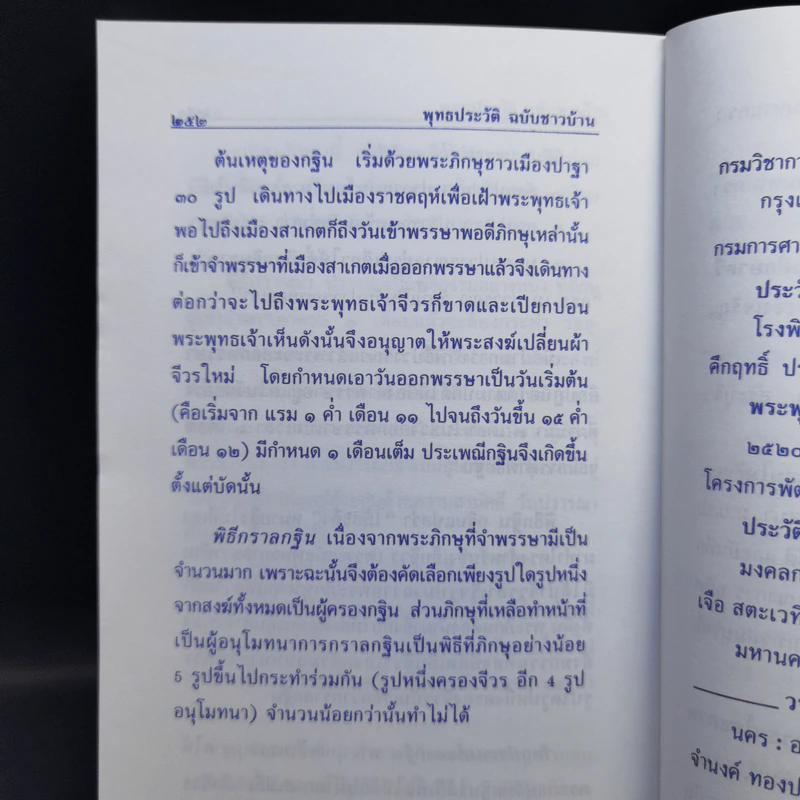 ๒๕๒ พุทธประวัติ ฉบับชาวบ้าน
ต้นเหตุของกฐิน เริ่มด้วยพระภิกษุชาวเมืองปาฐา
๓๐ รูป เดินทางไปเมืองราชคฤห์เพื่อเฝ้าพระพุทธเจ้า
พอไปถึงเมืองสาเกตก็ถึงวันเข้าพรรษาพอดีภิกษุเหล่านั้น
ก็เข้าจำพรรษาที่เมืองสาเกตเมื่อออกพรรษาแล้วจึงเดินทาง
ต่อกว่าจะไปถึงพระพุทธเจ้าจีวรก็ขาดและเปียกปอน
พระพุทธเจ้าเห็นดังนั้นจึงอนุญาตให้พระสงฆ์เปลี่ยนผ้า
จีวรใหม่ โดยกำหนดเอาวันออกพรรษาเป็นวันเริ่มต้น
(คือเริ่มจาก แรม ๑ ค่ำ เดือน ๑๑ ไปจนถึงวันขึ้น ๑๕ ค่ำ
เดือน ๑๒) มีกำหนด ๑ เดือนเต็ม ประเพณีกฐินจึงเกิดขึ้น
ตั้งแต่บัดนั้น
พิธีกราลกฐิน เนื่องจากพระภิกษุที่จำพรรษามีเป็น
จำนวนมาก เพราะฉะนั้นจึงต้องคัดเลือกเพียงรูปใดรูปหนึ่ง
จากสงฆ์ทั้งหมดเป็นผู้ครองกฐิน ส่วนภิกษุที่เหลือทำหน้าที่
เป็นผู้อนุโมทนาการกราลกฐินเป็นพิธีที่ภิกษุอย่างน้อย
5 รูปขึ้นไปกระทำร่วมกัน (รูปหนึ่งครองจีวร อีก 4 รูป
อนุโมทนา) จำนวนน้อยกว่านั้นทำไม่ได้
กรมวิชากา
กรุงเ
กรมการศา
ประวั
โรงพิ
คึกฤทธิ์ ป
พระพุ
๒๕๒๐
โครงการพัต
ประวัติ
มงคลก
เจือ สตะเวที
มหานค
ว
นคร : อ
จำนงค์ ทองป